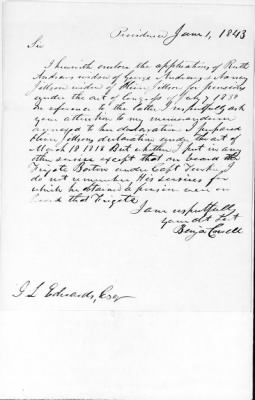 Providence June 1, 1843
Sir
I herewith enclose the applications of Ruth
Andrews widow of George Andrews & Nancy
Jillson widow of Oliver Jillson for pensions
under the act of Congress of July 7 1838
In reference to the latter, I respectfully ask
your attention to my memorandum
annexed to her declaration I prepared
Oliver Jillsons declaration under the act of
March 18 1818 But whether I put in any
other service except that on board the
Frigate Boston under Capt Tucker I
do not remember, His services for
which he obtained a pension were on
board that Frigate
I am respectfully
your obt Svt
Benja Cowell
J L Edwards, Esq